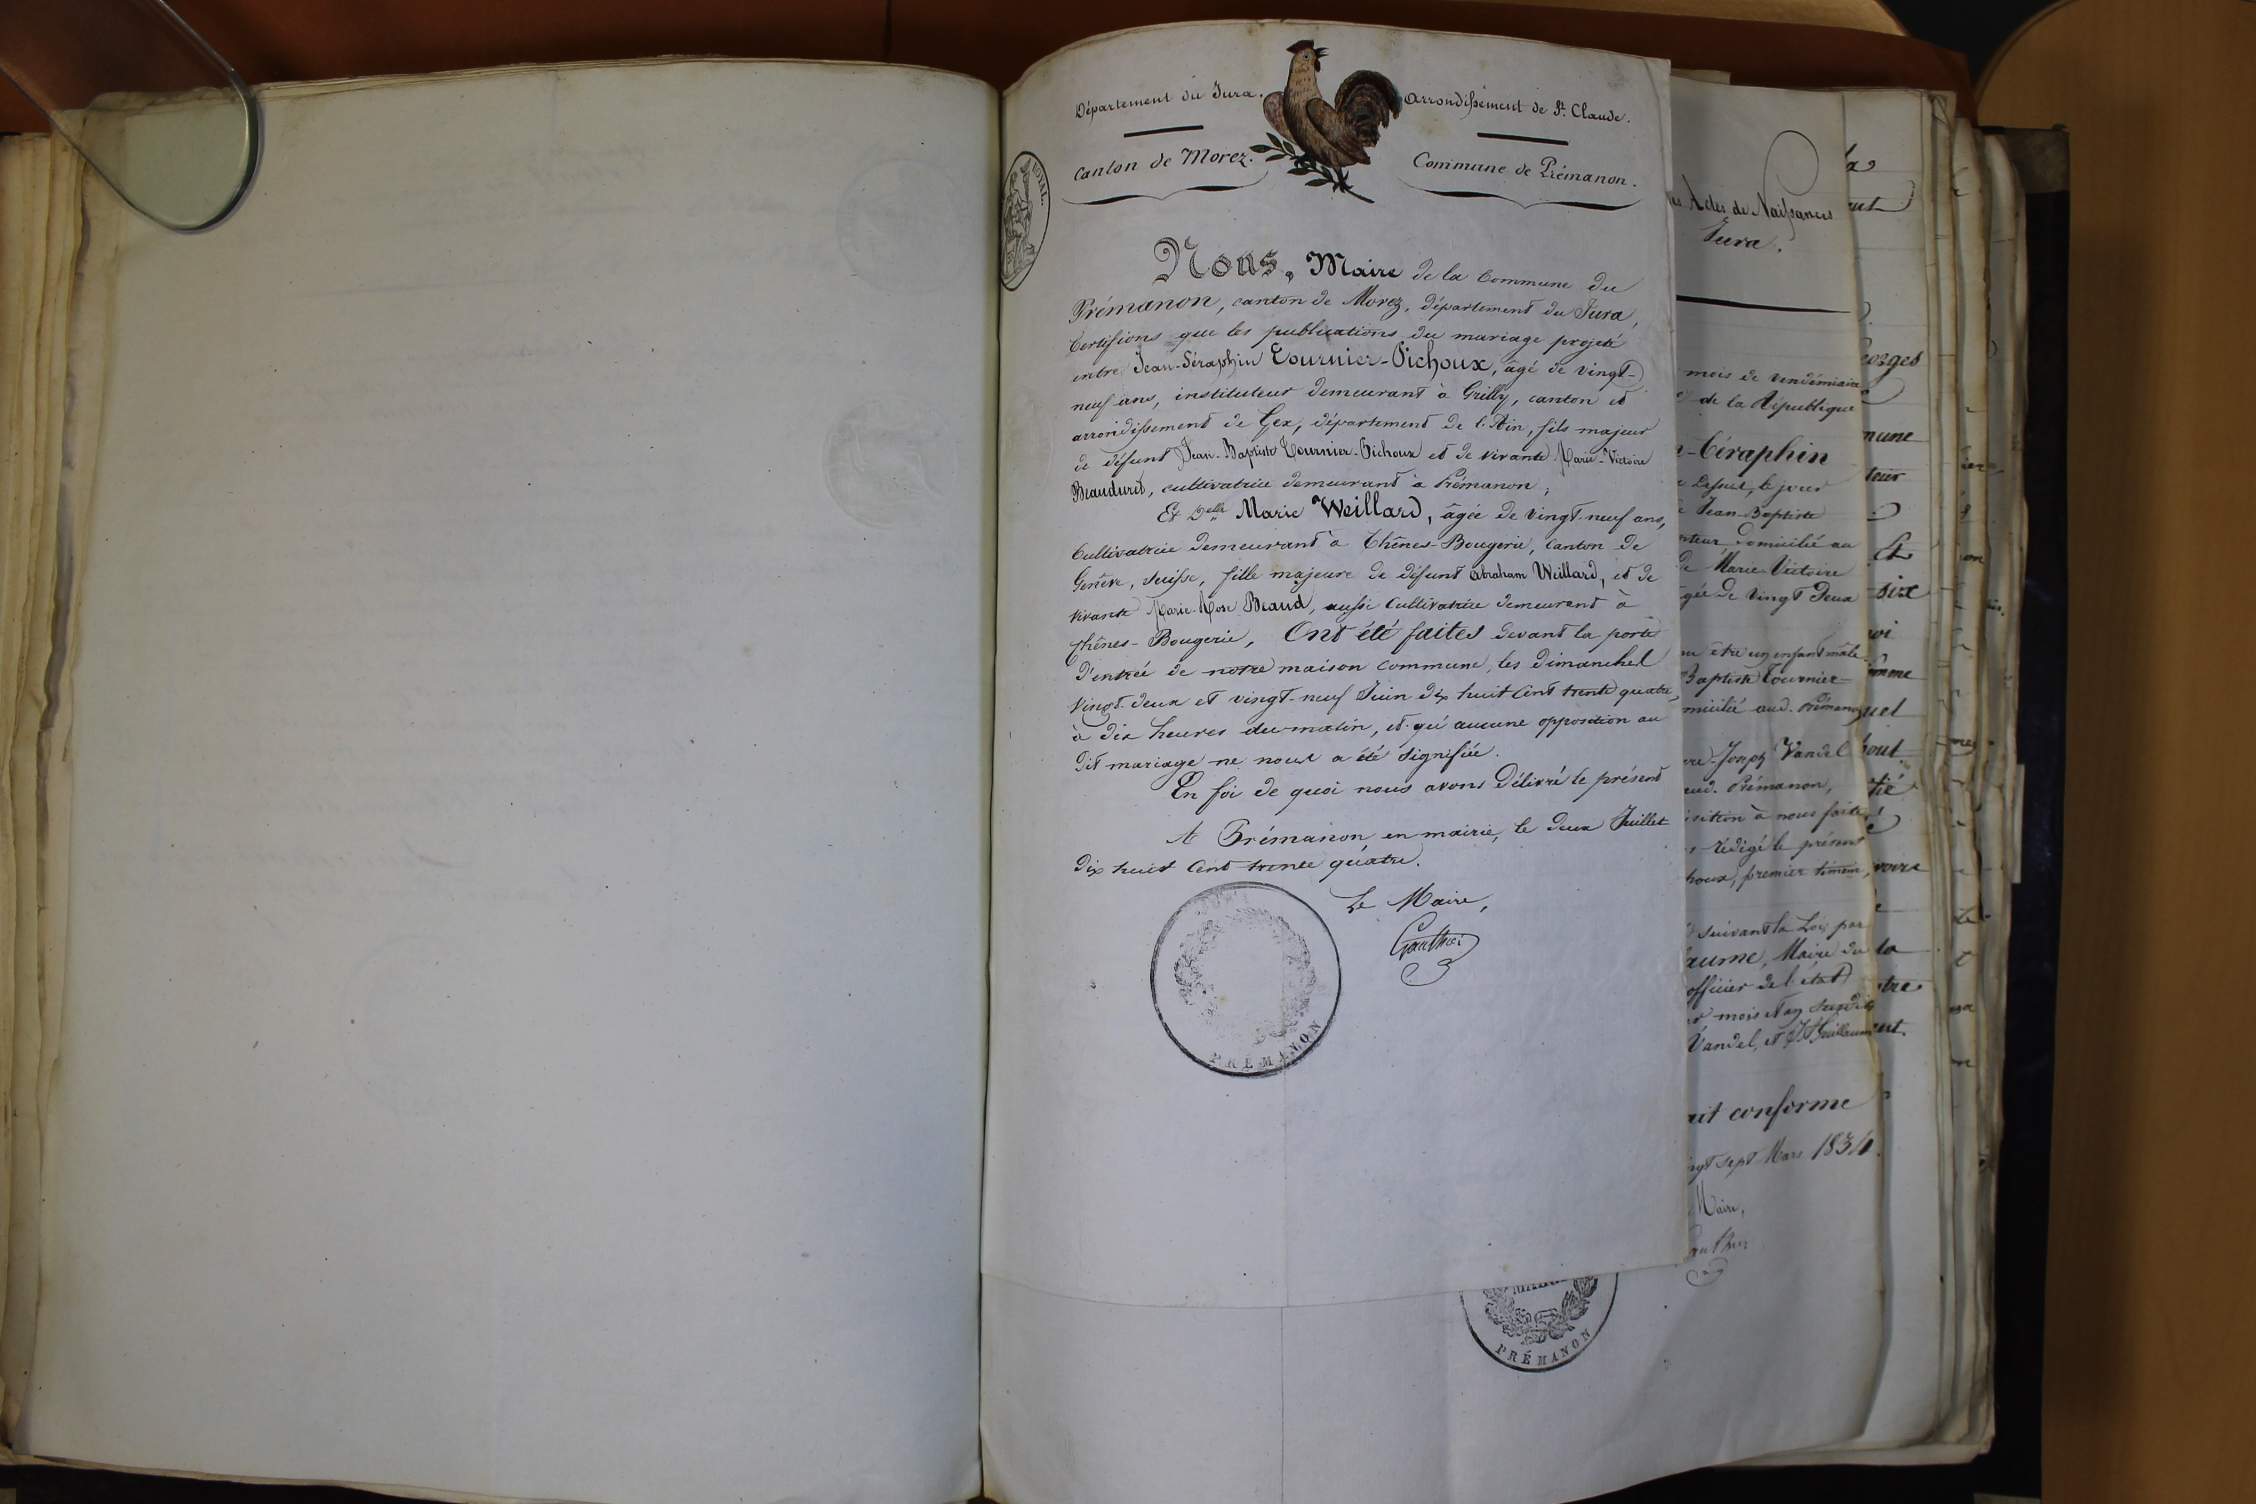 Département du Jura.
Arrondissement de St. Claude.
Canton de Morez.
Commune de Prémanon.
ROYAL.
Nous, Maire de la Commune du
Prémanon, canton de Morez, département du Jura,
Certifions que les publications du mariage projeté
entre Jean-Séraphin Tournier-Pichoux, âgé de vingt-
neuf ans, instituteur demeurant à Grilly, canton et
arrondissement de Gex, département de l'Ain, fils majeur
de défunt Jean-Baptiste Tournier-Pichoux et de vivante Marie-Victoire
Beauduret, cultivatrice demeurant à Prémanon;
Et Delle Marie Weillard, âgée de vingt-neuf ans,
Cultivatrice demeurant à Chênes-Bougerie, Canton de
Genève, Suisse, fille majeure de défunt Abraham Weillard, et de
vivante Marie-Rose Beaud, aussi Cultivatrice demeurant à
Chênes-Bougerie, Ont été faites devant la porte
d'entrée de notre maison commune, les dimanches
vingt-deux et vingt-neuf Juin dix huit cent trente quatre,
à dix heures du matin, et qu'aucune opposition au
dit mariage ne nous a été signifiée.
En foi de quoi nous avons délivré le présent
A Prémanon, en mairie, le deux Juillet
dix huit cent trente quatre.
Le Maire,
Gauthier
PRÉMANON
es Actes de Naissances
Jura.
mois de vendémiaire
de la République
-Céraphin
le jour
Jean-Baptiste
domicilié au
de Marie Victoire
âgée de vingt deux
être un enfant mâle
Baptiste Tournier-
domicilié aud. Prémanon
Joseph Vandel
aud. Prémanon,
à nous faite
rédigé le présent
premier témoin,
suivant la Loi par
Maire du
officier de l'état
mois et an susdits
Vandel, et J. Guillaume
conforme
vingt sept Mars 1834.
Maire,
Gauthier
PRÉMANON
Georges
Et
six